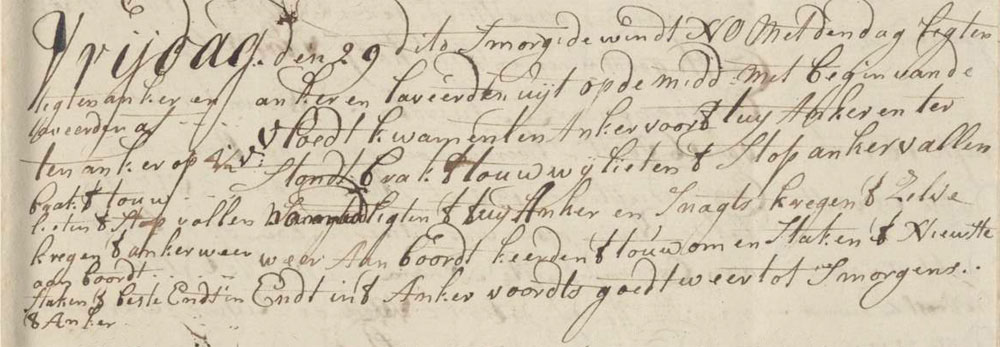 Vrijdag den 29 dito Smorg: de windt NO Met den dag ligten
anker en laveerden uijt op de midd: Met begin vande
vloedt kwamen ten Anker voor 't tuy Anker en ter
Stondt brak 't touw wij lieten 't Stop anker vallen
ligten 't tuy Anker en Snagts kregen 't Zelve
weer Aan boordt keerden 't touw om en Staken 't Nieuste
Endt in 't Anker voordts goedt weer tot Smorgens
ligten anker en
laveerden
ten anker op
brak 't touw
lieten 't Stop vallen
kregen 't anker weer
aan boordt
Staken 't beste Endt in
't Anker